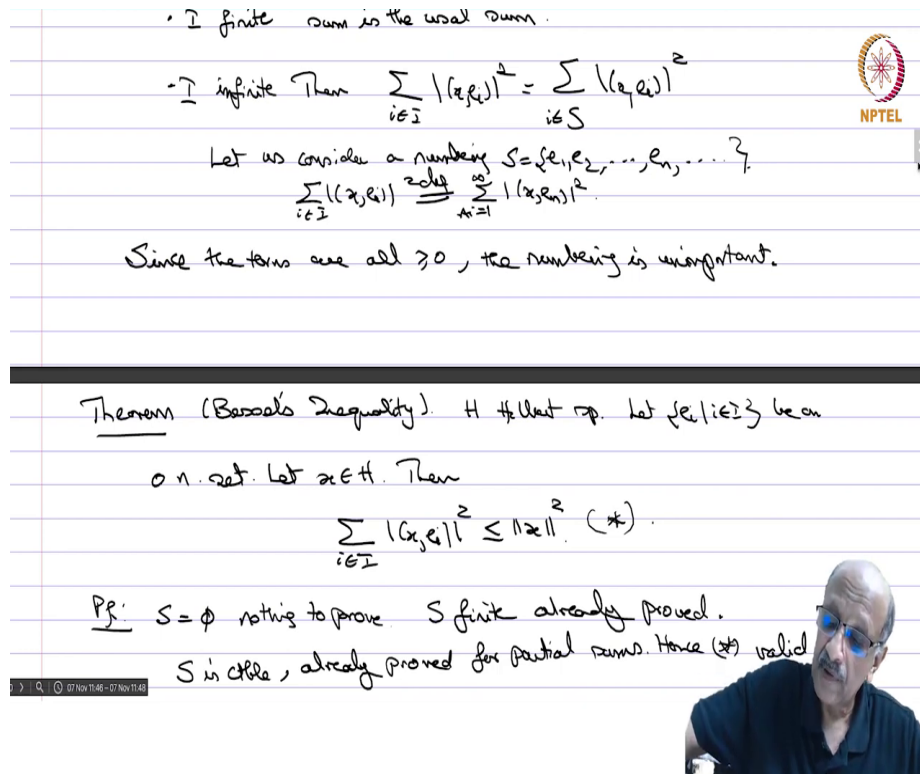 · I finite sum is the usual sum.
NPTEL
· I infinite Then ∑_{i∈I} |(x,e_i)|² = ∑_{i∈S} |(x,e_i)|²
Let us consider a numbering S={e_1,e_2,...,e_n,....}.
∑_{i∈I} |(x,e_i)|² def = ∑^∞_{i=1} |(x,e_n)|².
Since the terms are all ≥0, the numbering is unimportant.
Theorem (Bessel's Inequality). H Hilbert sp. Let {e_i | i∈I} be an
o.n. set. Let x∈H. Then
∑_{i∈I} |(x,e_i)|² ≤ ||x||². (*).
Pf: S=φ nothing to prove. S finite already proved.
S is ctble, already proved for partial sums. Hence (*) valid
07 Nov 11:46 – 07 Nov 11:48